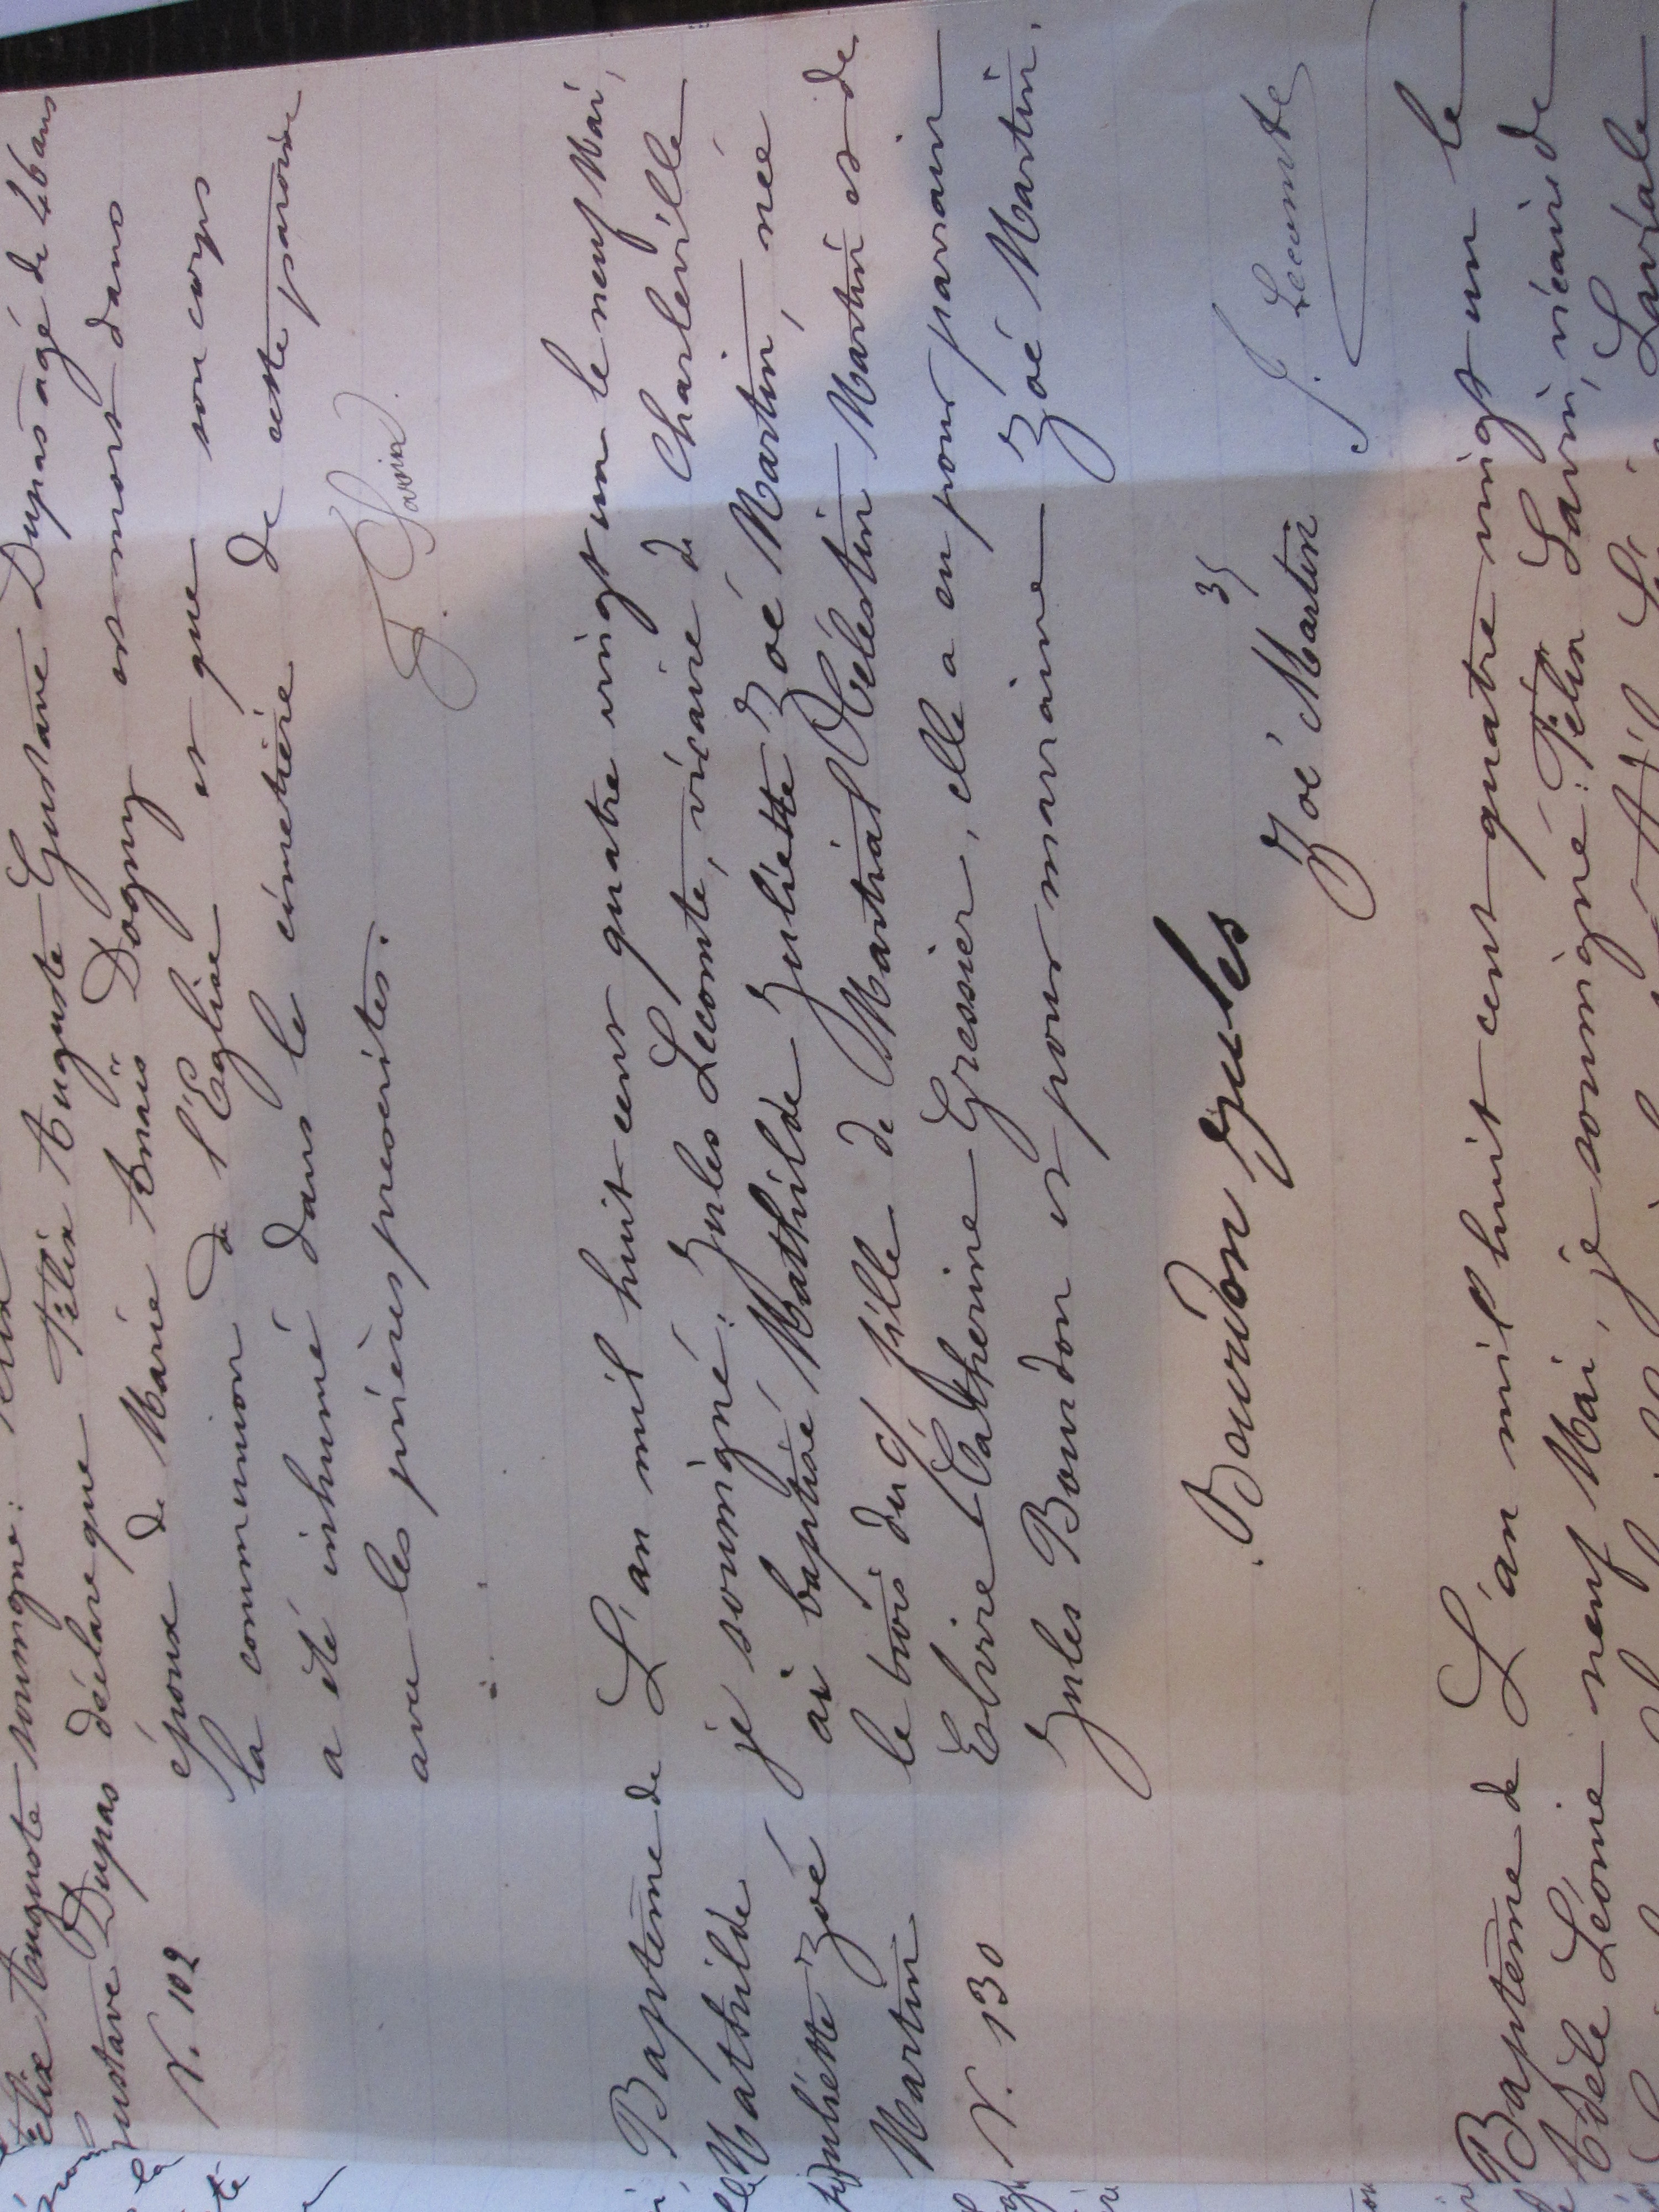 Auguste soussigné :
Felix
déclare que Félix Auguste Gustave Dupas agé de 46 ans
Gustave Dupas
époux de Marie Anaïs Dogny est mort dans
N. 102
la communion de l'Eglise et que son corps
a été inhumé dans le cimetière de cette paroisse
avec les prières prescrites.
Baptême de
Mathilde
Juliette Zoé
Martin
N. 130
L'an mil huit cent quatre vingt un le neuf Mai,
je soussigné : Jules Lecomte, vicaire de Charleville
ai baptisé Mathilde Juliette Zoé Martin, née
le trois du c/ fille de Martial Célestin Martin et de
Elvire Catherine Gressier, elle a eu pour parrain
Jules Bourdon et pour marraine Zoé Martin.
Bourdon Jules
Zoé Martin
J. Lecomte
Baptême de
Adèle Léonie
L'an mil huit cent quatre vingt un le
neuf Mai, je soussigné : Félix Lavin, vicaire de